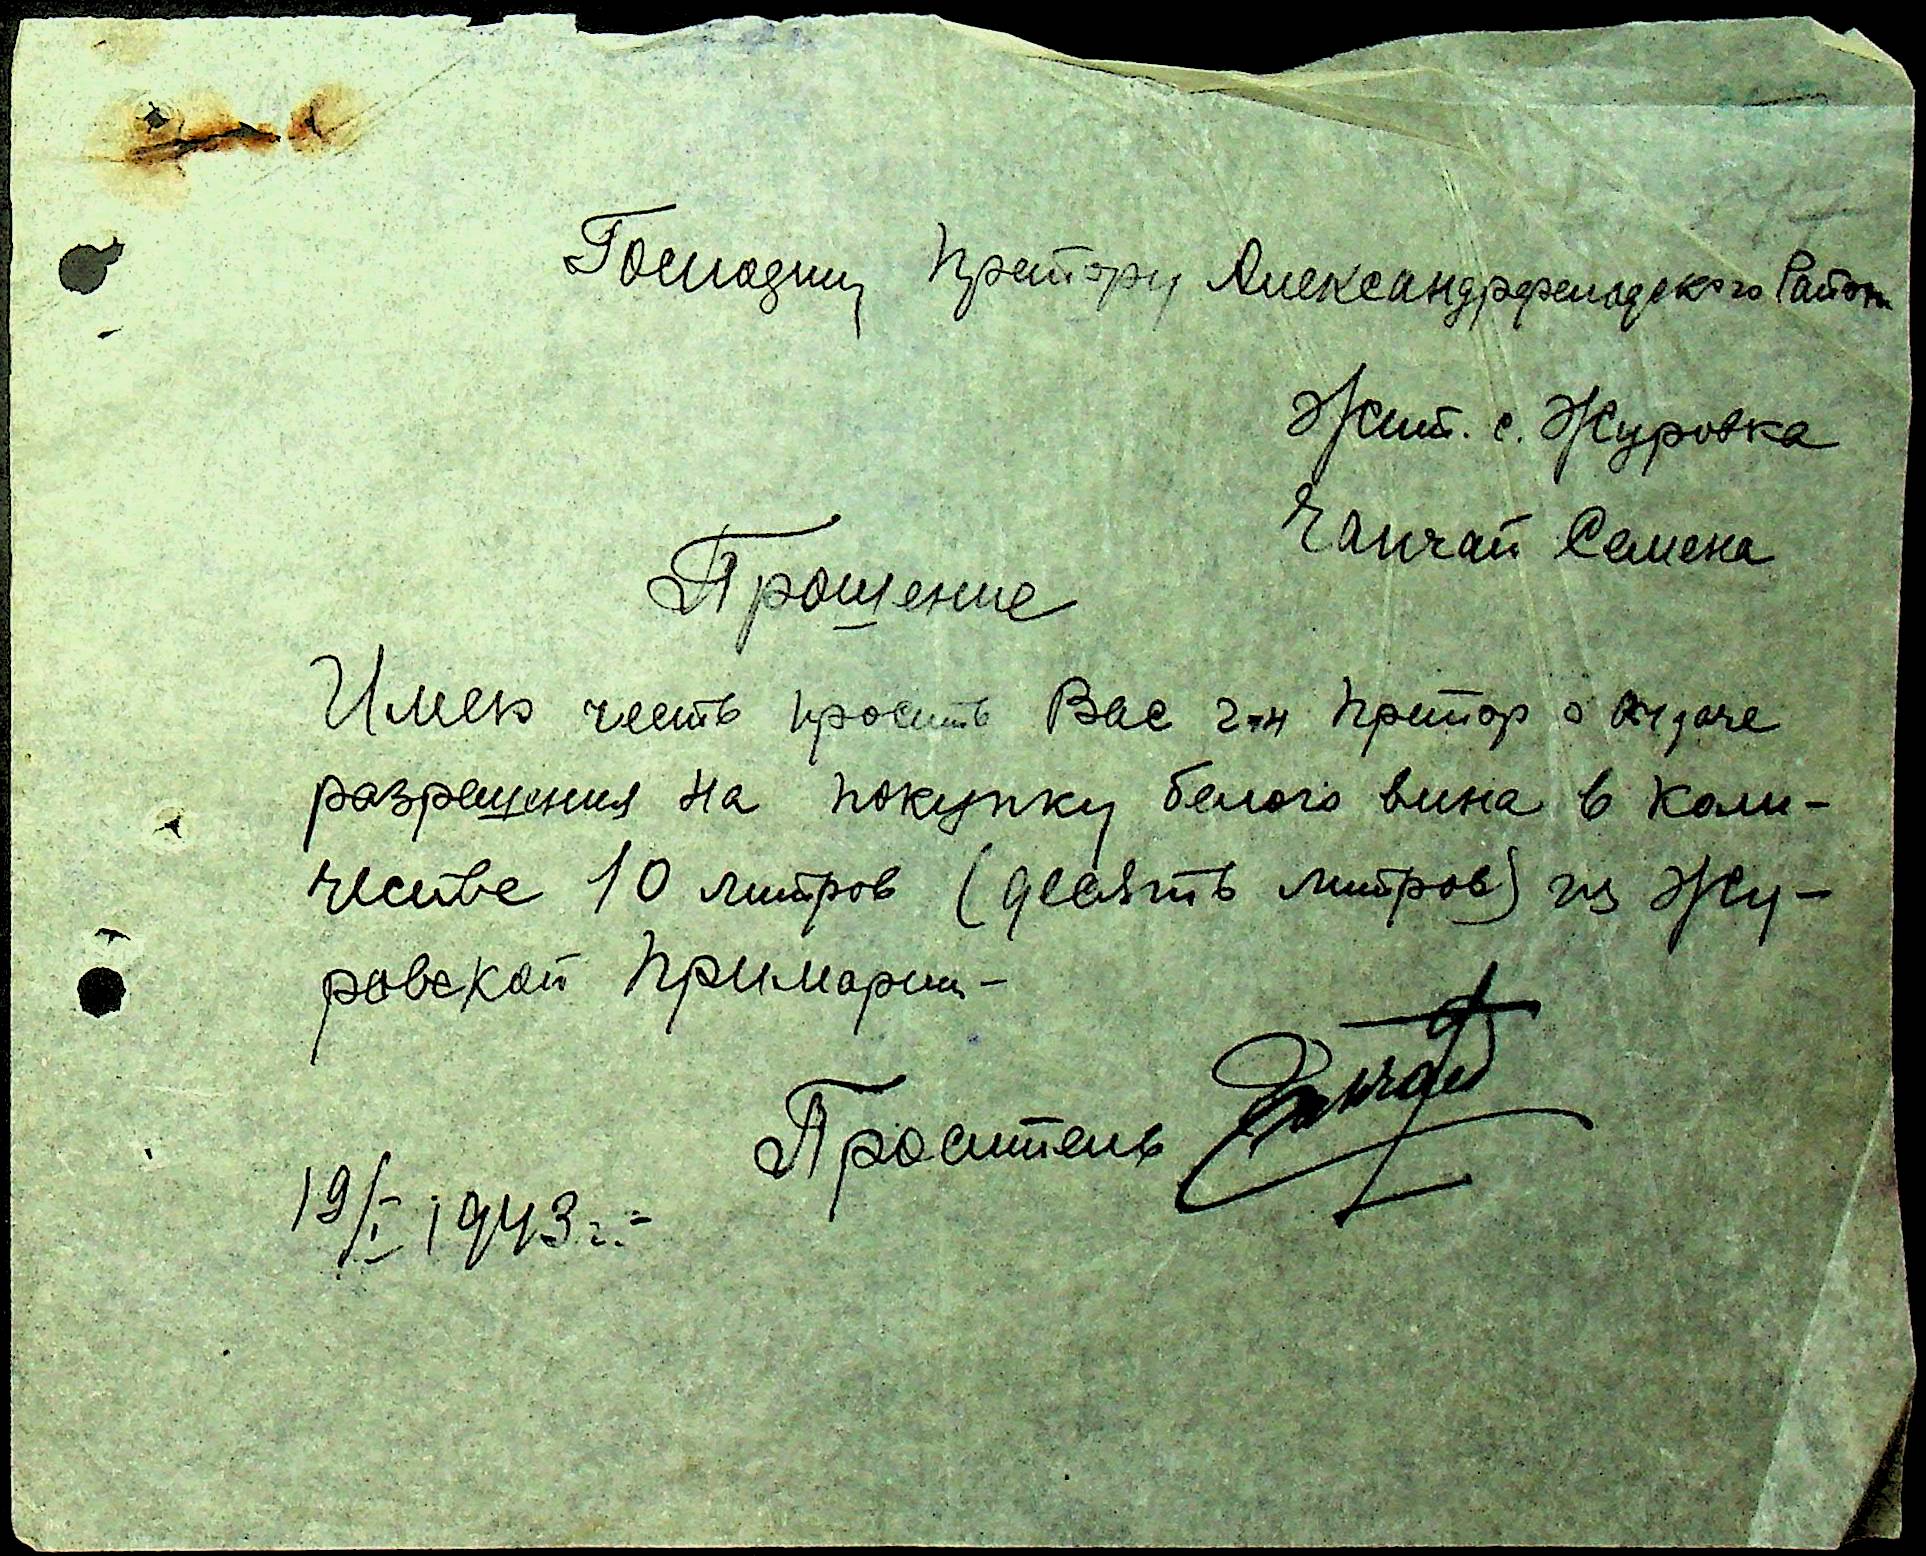 Господину Претору Александрфельдского Район
Жит. с. Журовка
Чанчай Семена
Прошение
Имею честь просить Вас г-н Претор о выдаче
разрешения на покупку белого вина в коли-
честве 10 литров (десять литров) из Жу-
ровской Примарии-
Проситель Чанчай
19/I 1943 г.-